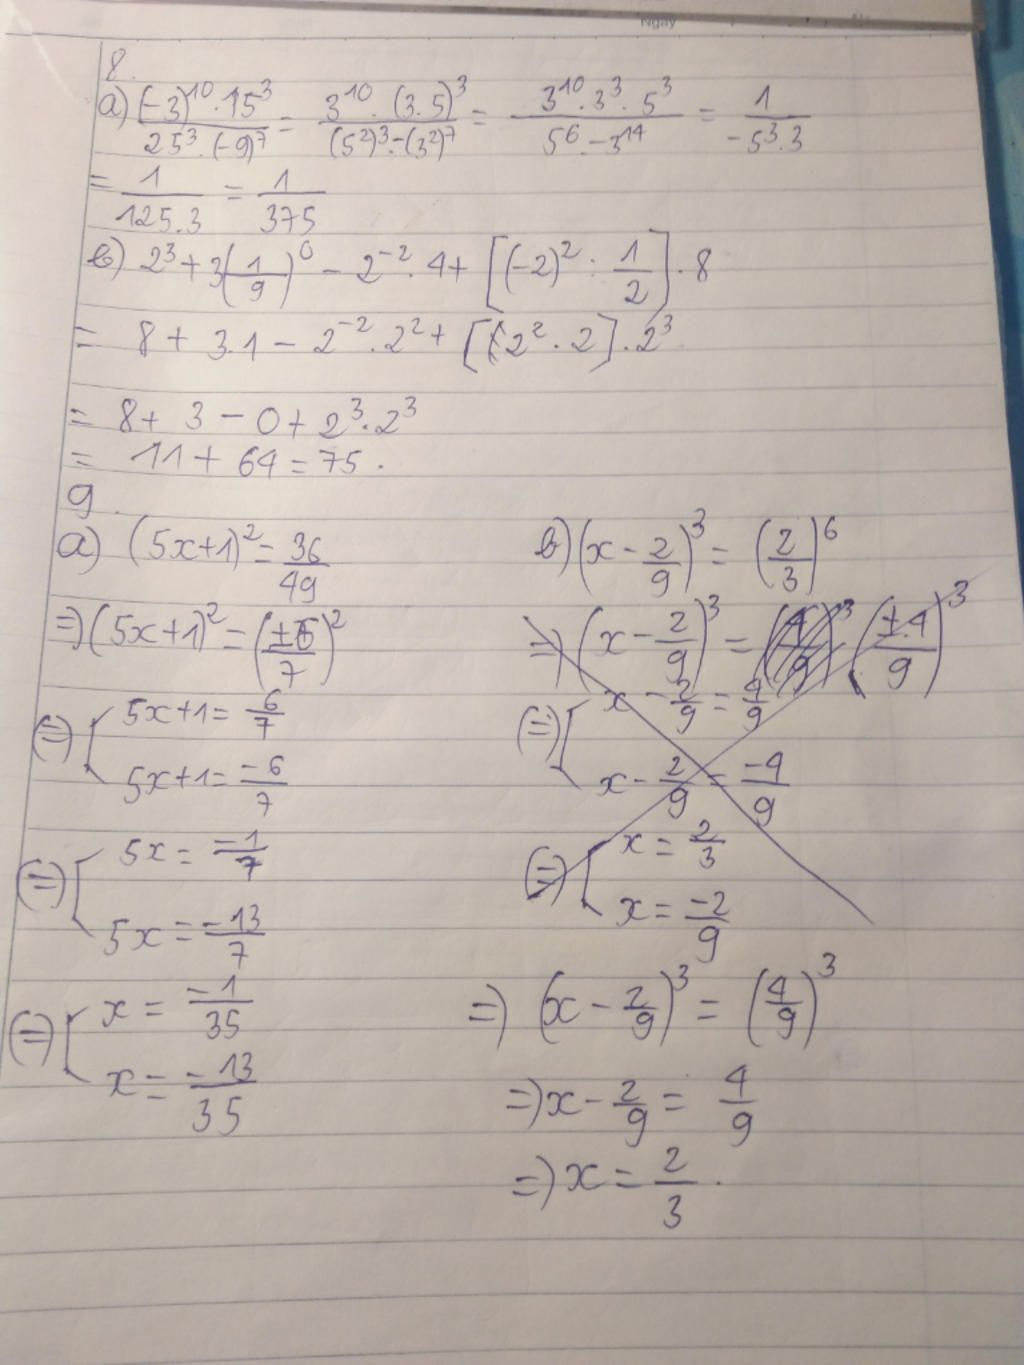 Ngày
8.
a) (-3)^10 . 15^3 / 25^3 . (-9)^7 = 3^10 . (3.5)^3 / (5^2)^3 . -(3^2)^7 = 3^10 . 3^3 . 5^3 / 5^6 . -3^14 = 1 / -5^3 . 3
= 1 / 125.3 = 1 / 375
b) 2^3 + 3(1/9)^0 - 2^-2 . 4 + [(-2)^2 : 1/2] . 8
= 8 + 3.1 - 2^-2 . 2^2 + [2^2 . 2] . 2^3
= 8 + 3 - 0 + 2^3 . 2^3
= 11 + 64 = 75.
9.
a) (5x+1)^2 = 36/49
=> (5x+1)^2 = (±6/7)^2
(=) [ 5x+1 = 6/7
5x+1 = -6/7
(=) [ 5x = -1/7
5x = -13/7
(=) [ x = -1/35
x = -13/35
b) (x - 2/9)^3 = (2/3)^6
=> (x - 2/9)^3 = (4/9)^3 (±4/9)^3
(=) [ x - 2/9 = 4/9
x - 2/9 = -4/9
(=) [ x = 2/3
x = -2/9
=> (x - 2/9)^3 = (4/9)^3
=> x - 2/9 = 4/9
=> x = 2/3.